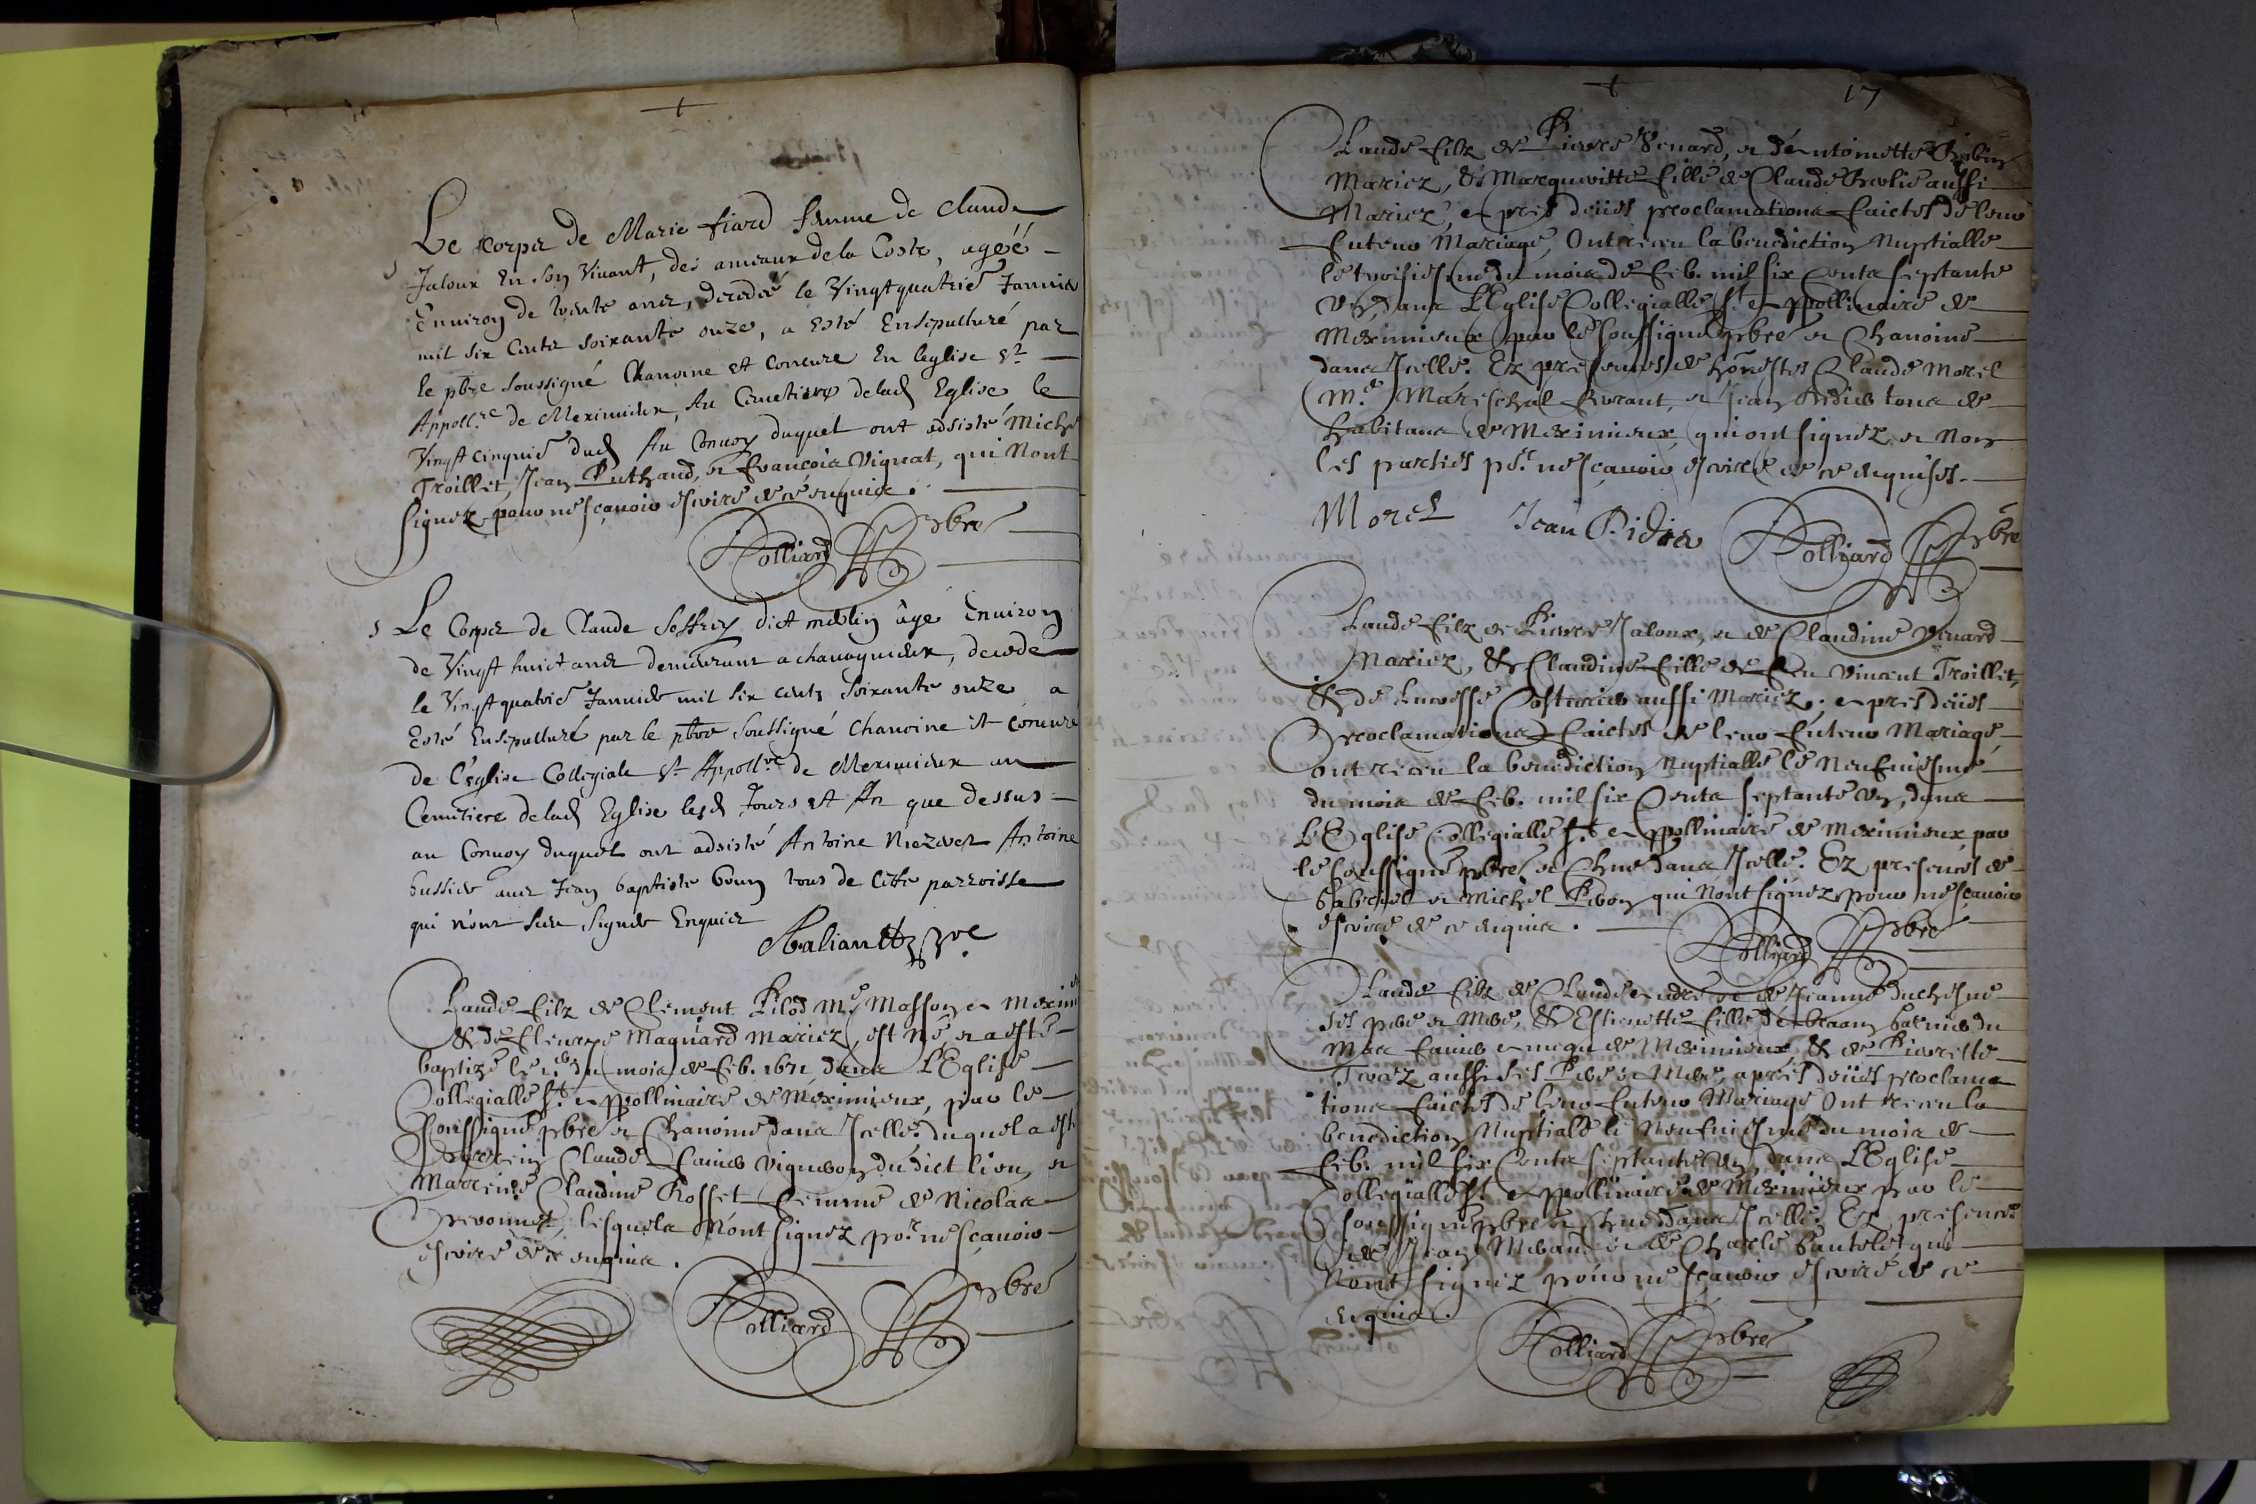 Le corps de Marie fiard femme de Claude
Jaloux en son Vivant, des ameaux de la Coste, agéé
Enuiron de trente ans, decedée le Vingtquatrie Januier
mil six Cents soixante onze, a esté Ensepulturé par
le pbre soussigné Chanoine et Concuré En leglise St
Appollre de Meximieux, Au Cimetiere delad Eglise le
Vingt cinquie dud Au Conuoy duquel ont adsisté Michel
Troillet, Jean Puthaud, et Francois Vignat, qui Nont
signez pour ne sçauoir escrire de ce enquis.
Rolliard pbre
Le Corps de Claude Joffrey dict mollin âge Enuiron
de Vingt huict ans demeurant a chauagnieux, decedé
le Vingt quatrie Januier mil six cents soixante onze a
Esté Ensepulturé par le pbre soussigné Chanoine et Concuré
de l'Eglise Collegiale St Appollre de Meximieux au
Cemitiere delad Eglise lesd Jours et An que dessus
au Conuoy duquel ont adsisté Antoine Antoine
bussier auec Jean baptiste bouin tous de Cette parroisse
qui n'ont sceu signer Enquis
pbre
Claude filz de Clement Pilod Me Masson a Mexim
& de Maguard Mariez, est Né, et a esté
baptizé le du mois de Feb. 1671 dans L'Eglise
Collegialle St Appollinaire de Meximieux, par le
soussigné pbre et Chanoine dans Icelle. duquel a esté
Parrein Claude Vigneron dudict lieu, et
Marrene Claudine Rosset femme de Nicolas
Greuonnet, lesquels Nont signez por ne sçauoir
escrire de ce enquis.
Rolliard pbre
17
Claude filz de Pierre Venard, et d'Antoinette
Mariez, & Margueritte fille de Claude aussi
Mariez, apres deües proclamations faictes de leur
futeur Mariage, Ont receu la benediction Nuptialle
le troisiesme du mois de Feb. mil six Cents septante
Un, dans L'Eglise Collegialle St Appollinaire de
Meximieux par le soussigné pbre et Chanoine
dans Icelle. Ez presences de honestes Claude Morel
Me Mareschal ferrant, et Jean Pidier tous
habitans de Meximieux, qui ont signez, et Non
les parties por ne sçauoir escrire de ce enquises.
Morel Jean Pidier Rolliard pbre
Claude filz de Pierre Jaloux, et de Claudine Venard
Mariez, & Claudine fille de feu Vincent Troillet,
& de aussi Mariez; apres deües
proclamations faictes de leur futeur Mariage,
ont receu la benediction Nuptialle le Neufuiesme
du mois de Feb. mil six Cents septante Un, dans
L'Eglise Collegialle St Appollinaire de Meximieux par
le soussigné pbre et Chne dans Icelle. Ez presences de
Gabriel et Michel qui Nont signez pour ne sçauoir
escrire de ce enquis.
Rolliard pbre
Claude filz de Claude et de Jeanne duchesne
ses pere et Mere, & Estienette fille de
Mas de Meximieux & de Pierrette
aussi ses Pere et Mere, apres deües proclama
tions faictes de leur futeur Mariage Ont receu la
benediction Nuptiale le Neufuiesme du mois de
Feb. mil six Cents septante Un, dans L'Eglise
Collegialle St Appollinaire de Meximieux par le
soussigné pbre et Chne dans Icelle. Ez presences
de Jean et de Charle qui
Nont signez pour ne sçauoir escrire de ce
enquis.
Rolliard pbre